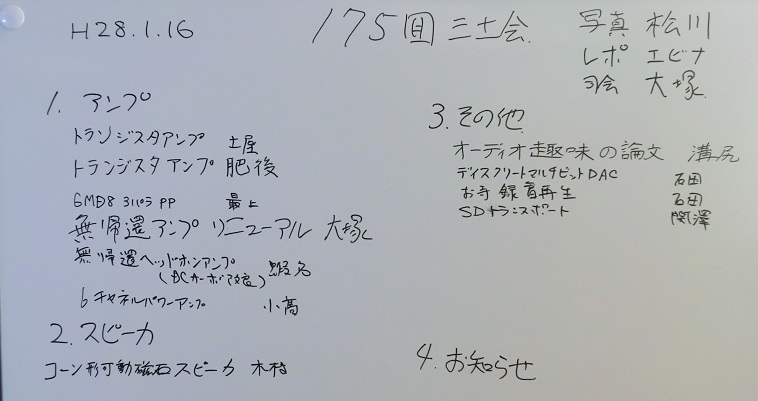 H28.1.16
175回 三土会
写真 松川
レポ エビナ
司会 大塚
1. アンプ
トランジスタアンプ 土屋
トランジスタアンプ 肥後
6MD8 PP 最上
無帰還アンプリニューアル 大塚
無帰還ヘッドホンアンプ 蝦名
(DCサーボ
6チャネルパワーアンプ 小高
2. スピーカ
コーン形可動磁石スピーカ 木村
3. その他
オーディオ趣味の論文 溝尻
ディスクリートマルチビットDAC 石田
お寺録音再生 石田
SDトランスポート 関澤
4. お知らせ